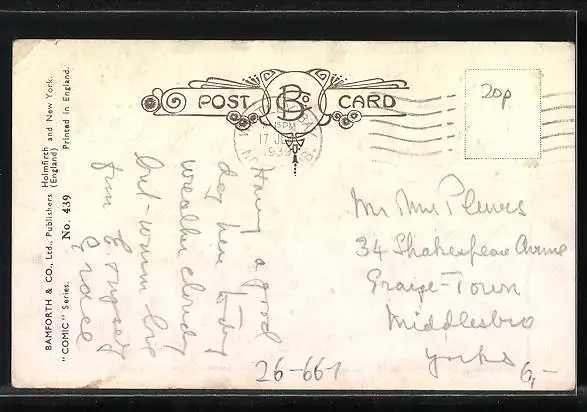 BAMFORTH & CO., Ltd., Publishers Holmfirth and New York.
(England)
"COMIC" Series. No. 439 Printed in England.
POST CARD
BCo
20p
15 PM
17 JU
1939
Having a good
day here to-day
weather cloudy
but - warm love
from E. myself
Grace
Mr Mrs Plews
34 Shakespeare Avenue
Grange-Town
Middlesbro
Yorks
26-661
6,-